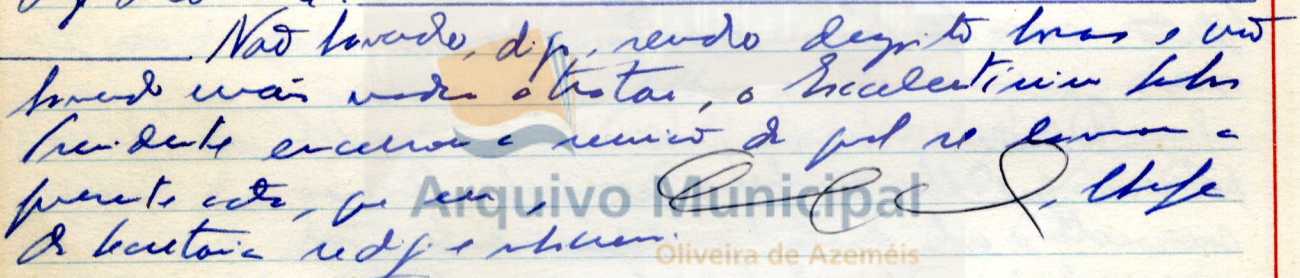 Não havendo, digo, sendo dezoito horas e não
havendo mais nada a tratar, o Excelentíssimo Senhor
Presidente encerrou a reunião da qual se lavrou a
presente acta, que eu, , Chefe
da Secretaria redigi e subscrevi.
Arquivo Municipal
Oliveira de Azeméis